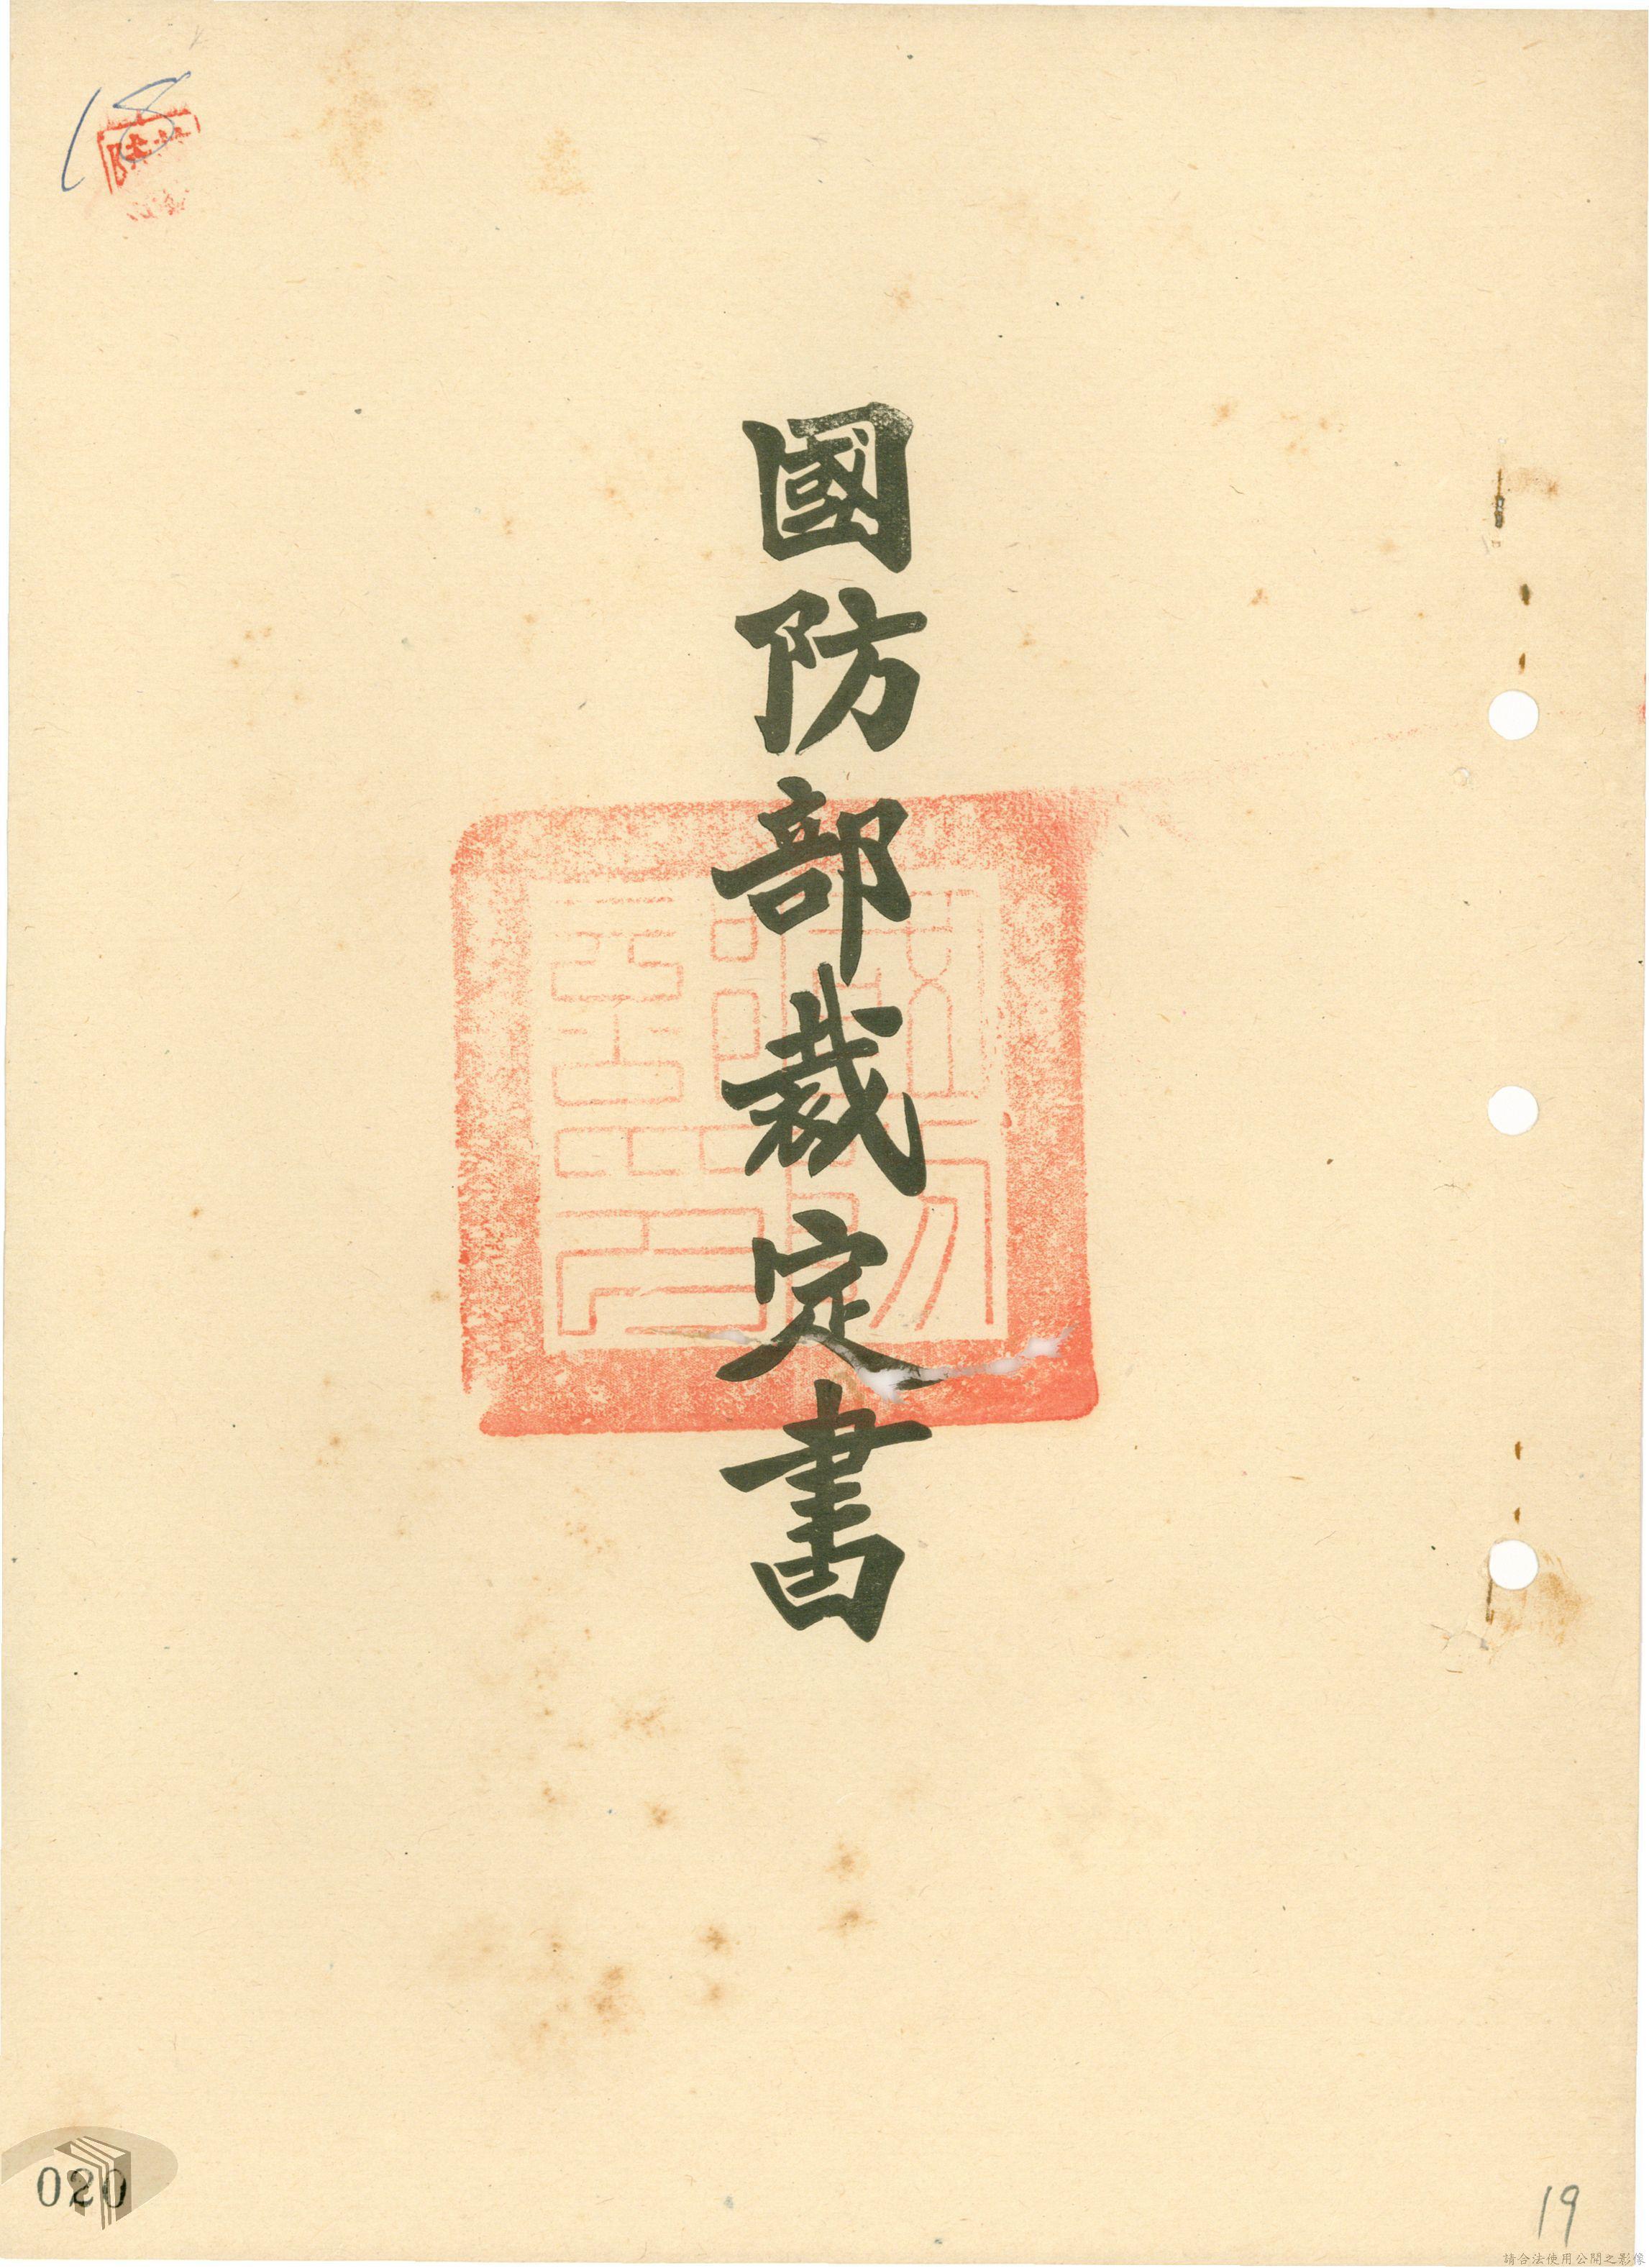 18
國防部裁定書
020
19
請合法使用公開之影像